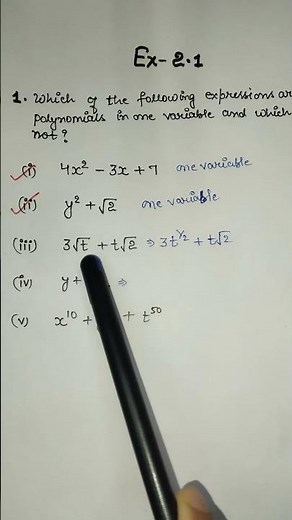 Ex-2.1
1. Which of the following expressions are
polynomials in one variable and which
not?
(i) 4x² - 3x + 7 one variable
(ii) y² + √2 one variable
(iii) 3√t + t√2 ⇒ 3t^½ + t√2
(iv) y + ⇒
(v) x¹⁰ + + t⁵⁰